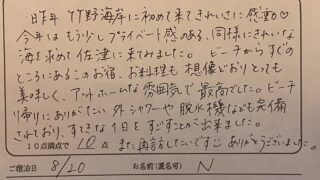 昨年 竹野海岸に初めて来てきれいさに感動♡
今年はもう少しプライベート感のある、同様にきれいな
海を求めて佐津に来てみました。ビーチからすぐの
ところにあるこのお宿、お料理も想像どおりとっても
美味しく、アットホームな雰囲気で最高でした。ビーチ
帰りにありがたい外シャワーや脱水機なども完備
されており、すてきな1日をすごすことが出来ました。
10点満点で 10 点 また再訪したいです☺ ありがとうございました。
ご宿泊日 8/20 お名前(匿名可) N